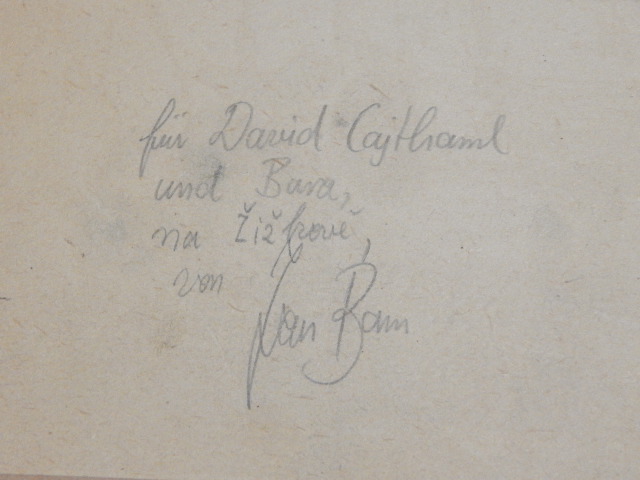 für David Cajthaml
und Bara,
na Žižkově,
von
Jan Bam